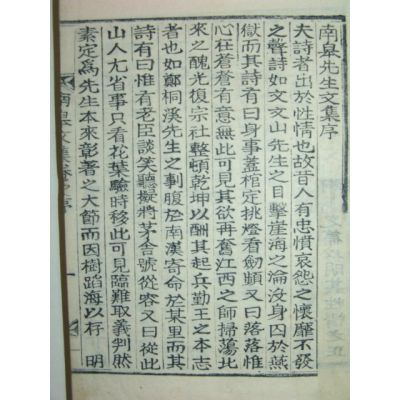 南皐先生文集序
夫詩者出於性情也故昔人有忠憤哀怨之懷靡不發
之聲詩如文文山先生之目擊崖海之淪没身囚於燕
獄而其詩有曰身事蓋棺定挑燈看劒頻又曰落落惟
心在蒼蒼有意無此可見其欲再奮江西之師掃蕩北
來之醜光復宗社整頓乾坤以酬其起兵勤王之本志
者也如鄭桐溪先生之剚腹於南漢寄命於某里而其
詩有曰惟有老臣談笑聽擬將茅舍號從容又曰從此
山人尢省事只看花葉驗時移此可見臨難取義判然
素定爲先生本來彰著之大節而因樹蹈海以存 明
南皐文集